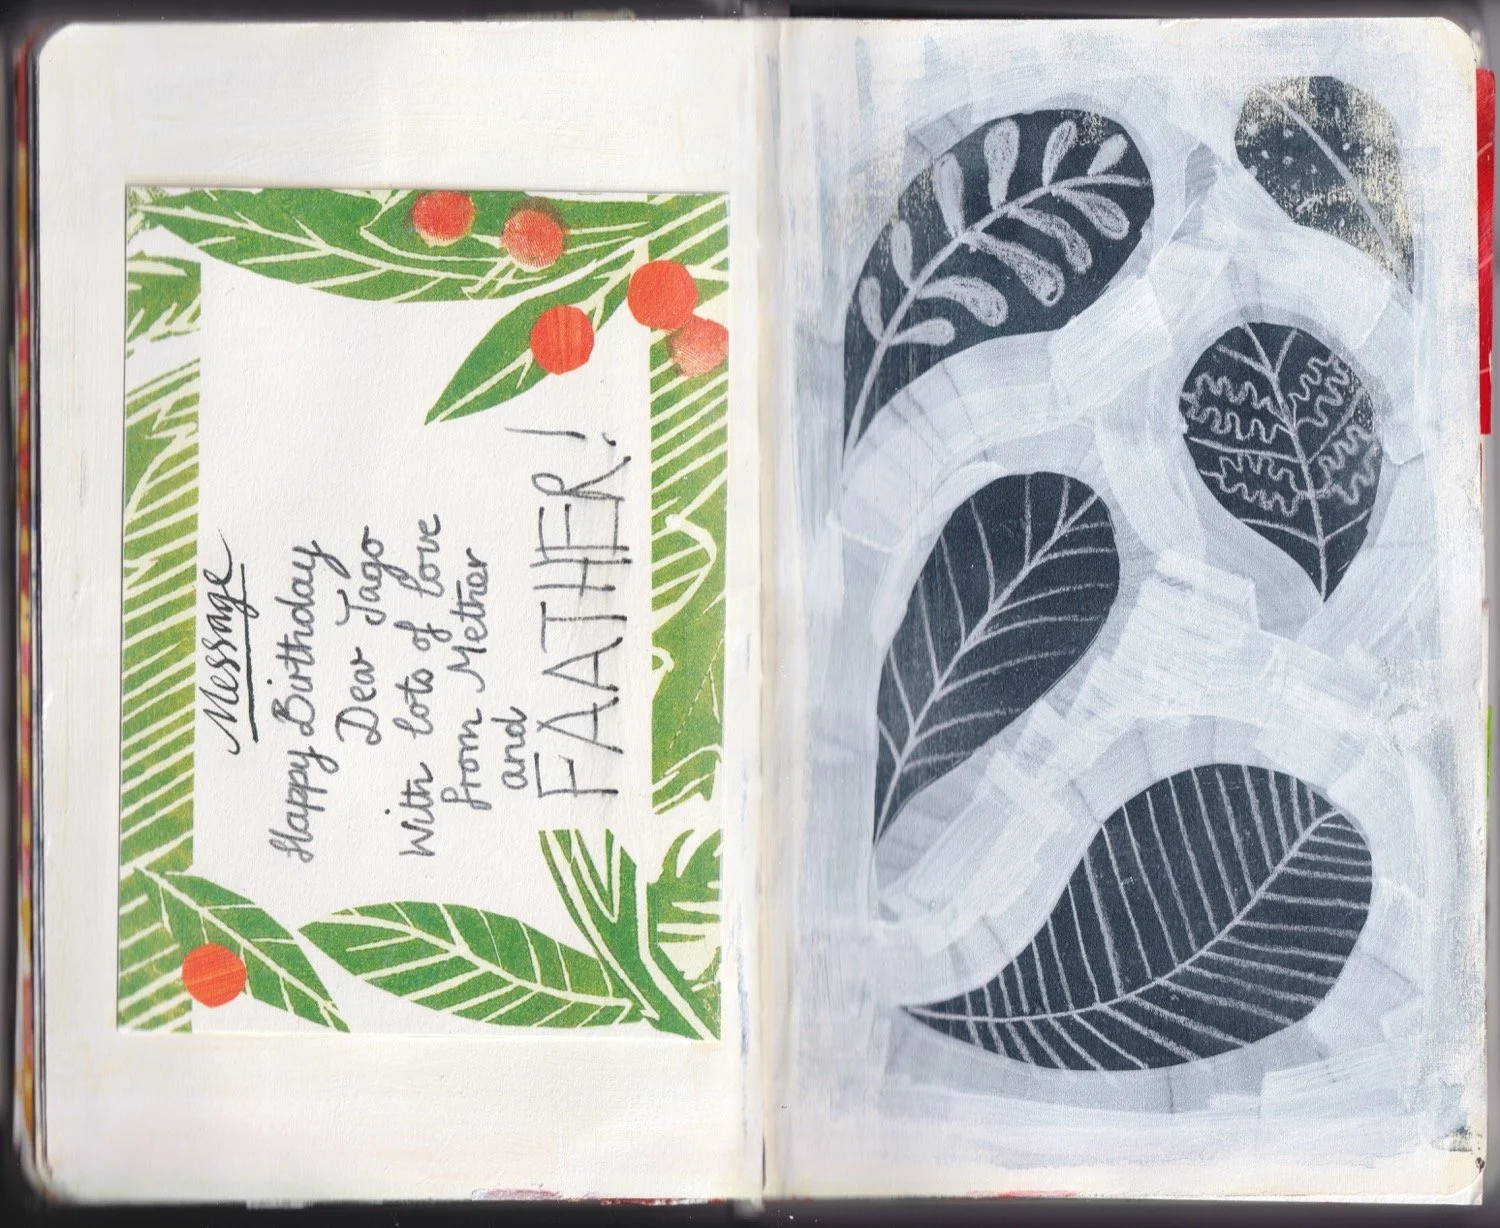 Message
Happy Birthday
Dear Jago
With lots of love
from Mether
and
FAATHER!